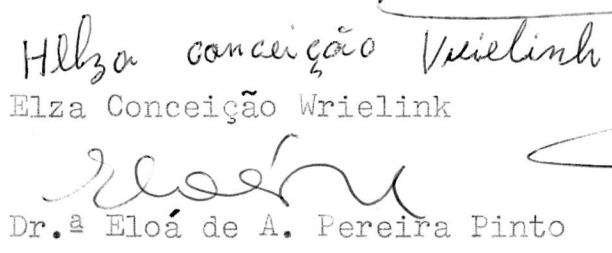 Helza conceição Vrielink
Elza Conceição Wrielink
Eloá
Dr.ª Eloá de A. Pereira Pinto